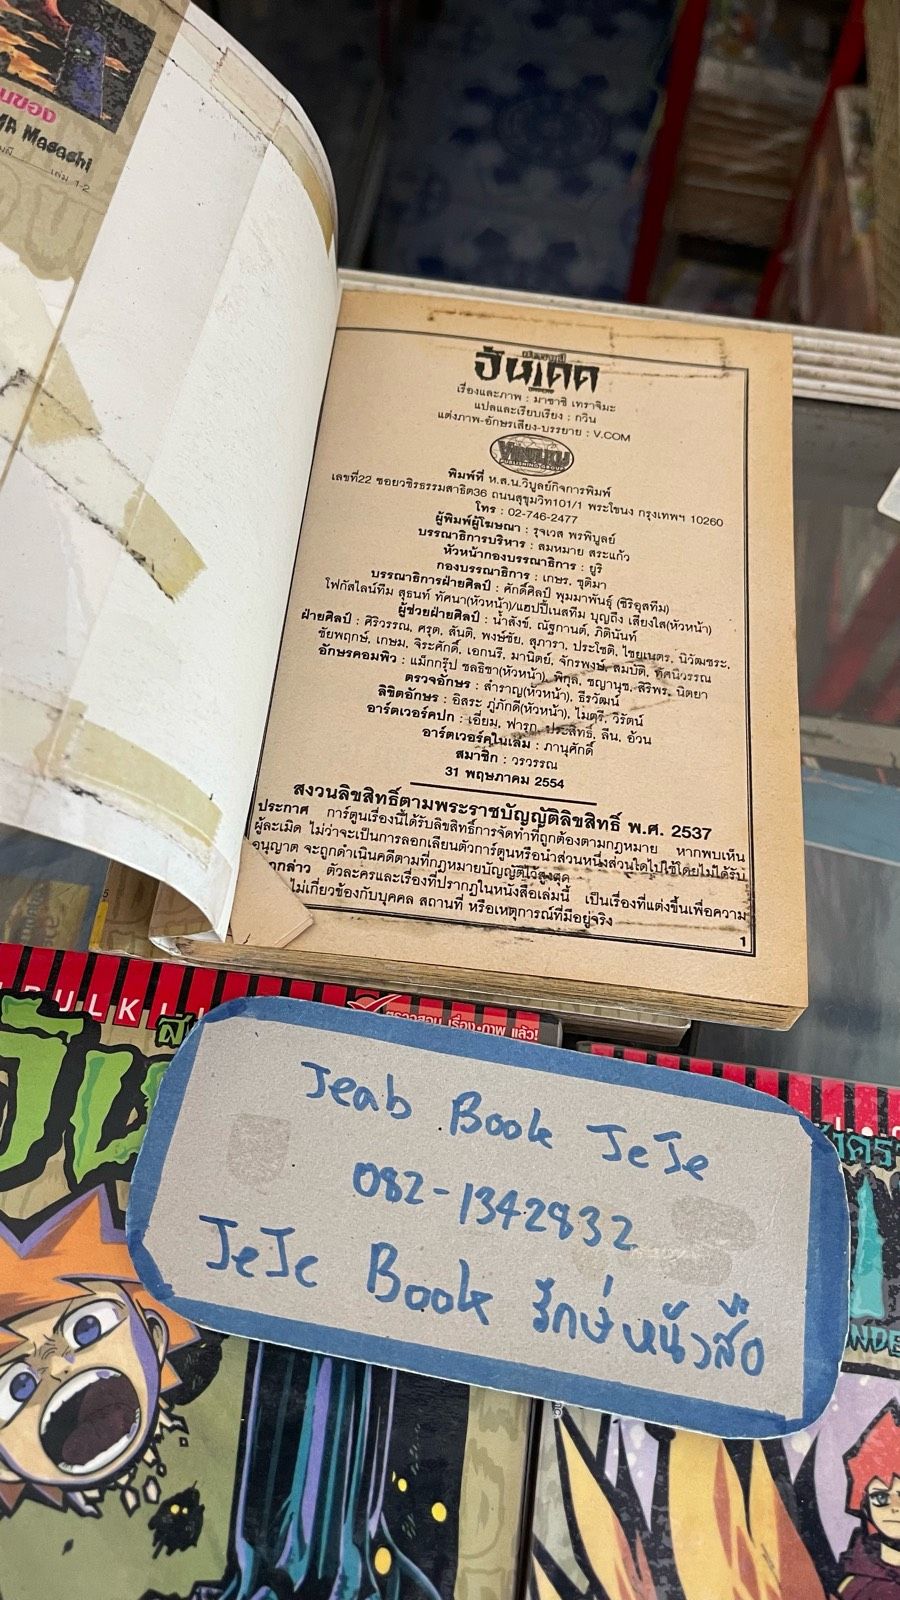 นของ
MA Masashi
เล่ม 1-2
อันเดด
เรื่องและภาพ : มาซาชิ เทราจิมะ
แปลและเรียบเรียง : กวิน
แต่งภาพ-อักษรเสียง-บรรยาย : V.COM
VIBULKIJ
PUBLISHING GROUP
พิมพ์ที่ ห.ส.น.วิบูลย์กิจการพิมพ์
เลขที่22 ซอยวชิรธรรมสาธิต36 ถนนสุขุมวิท101/1 พระโขนง กรุงเทพฯ 10260
โทร : 02-746-2477
ผู้พิมพ์ผู้โฆษณา : รุจเวส พรพิบูลย์
บรรณาธิการบริหาร : สมหมาย สระแก้ว
หัวหน้ากองบรรณาธิการ : ยูริ
กองบรรณาธิการ : เกษร, ชุติมา
บรรณาธิการฝ่ายศิลป์ : ศักดิ์ศิลป์ พุมมาพันธุ์ (ซิริอุสทีม)
โฟกัสไลน์ทีม สุธนท์ ทัศนา(หัวหน้า)/แฮปปี้เนสทีม บุญถึง เสียงใส(หัวหน้า)
ผู้ช่วยฝ่ายศิลป์ : น้ำสังข์, ณัฐกานต์, ภิตินันท์
ฝ่ายศิลป์ : ศิริวรรณ, ศรุต, สันติ, พงษ์ชัย, สุภารา, ประโชติ, ไชยเนตร, นิวัฒชระ,
ชัยพฤกษ์, เกษม, จิระศักดิ์, เอกนรี, มานิตย์, จักรพงษ์, สมบัติ, ทัศนีวรรณ
อักษรคอมพิว : แม็กกรุ๊ป ชลธิชา(หัวหน้า), พิกุล, ชญานุช, สิริพร, นิตยา
ตรวจอักษร : สำราญ(หัวหน้า), ธีรวัฒน์
ลิขิตอักษร : อิสระ ภู่ภักดี(หัวหน้า), ไมตรี, วิรัตน์
อาร์ตเวอร์คปก : เอี่ยม, ฟารุก, ประสิทธิ์, ลีน, อ้วน
อาร์ตเวอร์คในเล่ม : ภานุศักดิ์
สมาชิก : วรวรรณ
31 พฤษภาคม 2554
สงวนลิขสิทธิ์ตามพระราชบัญญัติลิขสิทธิ์ พ.ศ. 2537
ประกาศ การ์ตูนเรื่องนี้ได้รับลิขสิทธิ์การจัดทำที่ถูกต้องตามกฎหมาย หากพบเห็น
ผู้ละเมิด ไม่ว่าจะเป็นการลอกเลียนตัวการ์ตูนหรือนำส่วนหนึ่งส่วนใดไปใช้โดยไม่ได้รับ
อนุญาต จะถูกดำเนินคดีตามที่กฎหมายบัญญัติไว้สูงสุด
กล่าว ตัวละครและเรื่องที่ปรากฏในหนังสือเล่มนี้ เป็นเรื่องที่แต่งขึ้นเพื่อความ
ไม่เกี่ยวข้องกับบุคคล สถานที่ หรือเหตุการณ์ที่มีอยู่จริง
1
BULKI
ตรวจสอบ เรื่อง•ภาพ แล้ว!
Jeab Book JeJe
082-1342832
JeJe Book รักษ์หนังสือ